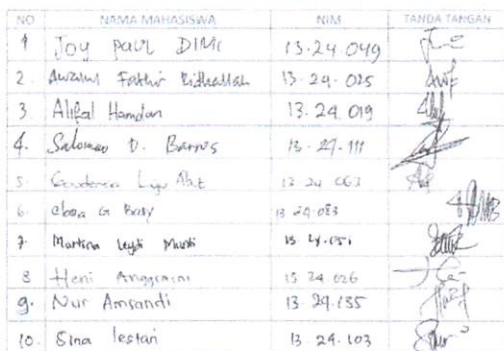 NO NAMA MAHASISWA NIM TANDA TANGAN
1 Joy paul DIMI 13.24.049
2. Fathir Ridhallah 13.24.025
3. Alifal Hamdan 13.24.019
4. Salomao D. Barros 13.24.111
5. 13 24 063
6. G 13 24.083
7. Martina 13 24.151
8 Heni Anggraini 13 24 026
9. Nur Amsandi 13 24.135
10. Sina lestari 13.24.103